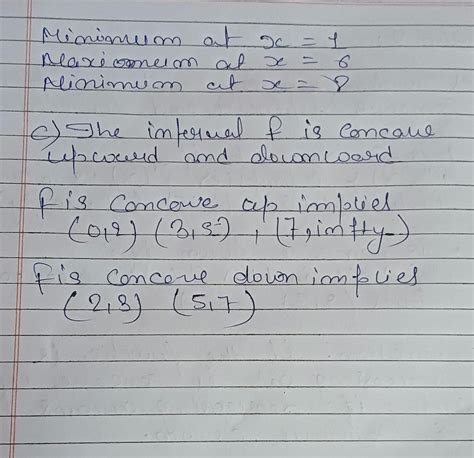 Minimum at x = 1
Maximum at x = 6
Minimum at x = 8
c) The interval f is concave
upward and downward
f is concave up implies
(0,2) (3,5), (7, infty)
f is concave down implies
(2,3) (5,7)